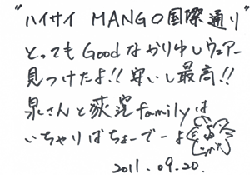 "ハイサイ MANGO国際通り"
とってもGoodなかりゆしウェアー
見つけたよ!! 安いし最高!!
泉さんと荻窪familyは
いちゃりばちょーでーよ
2011.09.20.